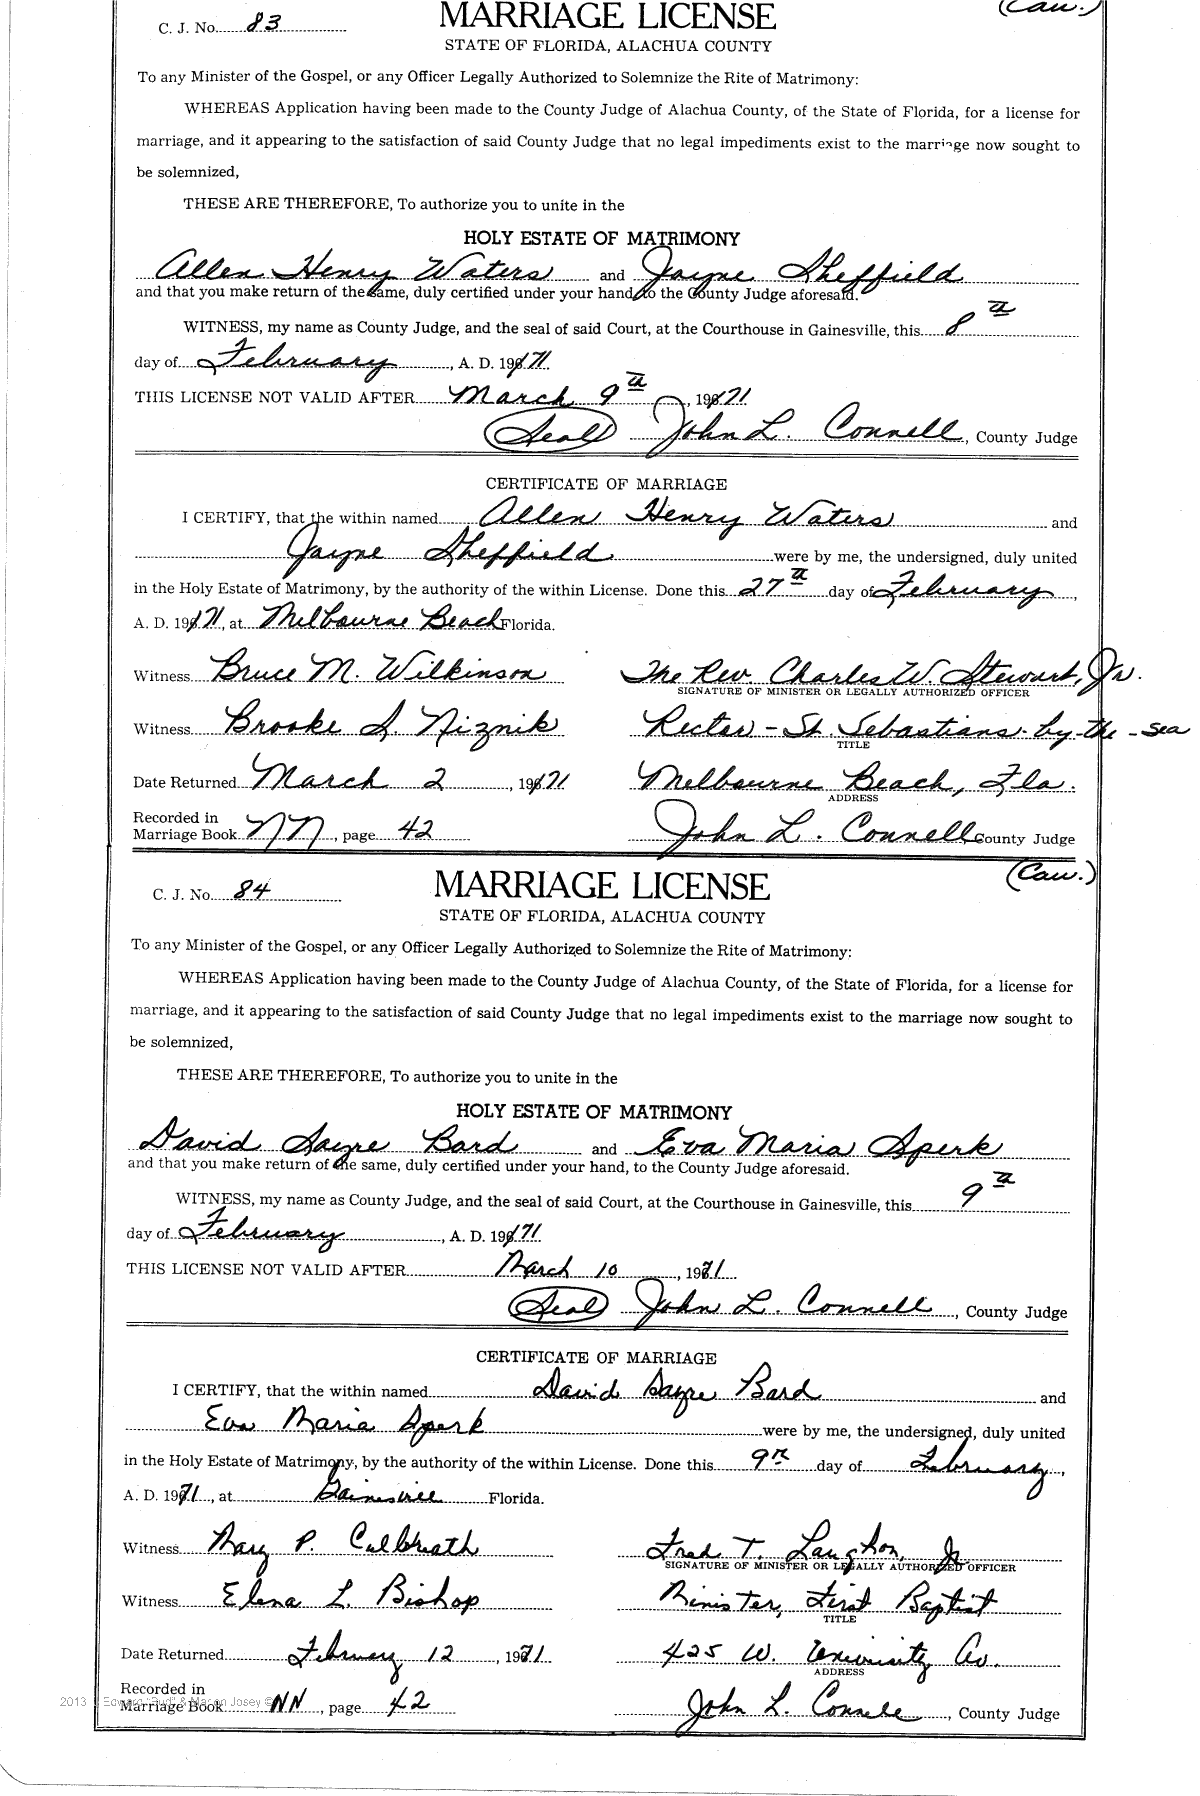 (Cau.)
C. J. No. 83 MARRIAGE LICENSE
STATE OF FLORIDA, ALACHUA COUNTY
To any Minister of the Gospel, or any Officer Legally Authorized to Solemnize the Rite of Matrimony:
WHEREAS Application having been made to the County Judge of Alachua County, of the State of Florida, for a license for
marriage, and it appearing to the satisfaction of said County Judge that no legal impediments exist to the marriage now sought to
be solemnized,
THESE ARE THEREFORE, To authorize you to unite in the
HOLY ESTATE OF MATRIMONY
Allen Henry Waters and Jayne Sheffield
and that you make return of the same, duly certified under your hand, to the County Judge aforesaid.
WITNESS, my name as County Judge, and the seal of said Court, at the Courthouse in Gainesville, this 8th
day of February, A. D. 1971
THIS LICENSE NOT VALID AFTER March 9th, 1971
(Seal) John L. Connell, County Judge
CERTIFICATE OF MARRIAGE
I CERTIFY, that the within named Allen Henry Waters and
Jayne Sheffield were by me, the undersigned, duly united
in the Holy Estate of Matrimony, by the authority of the within License. Done this 27th day of February,
A. D. 1971, at Melbourne Beach Florida.
Witness Bruce M. Wilkinson The Rev. Charles W. Stewart, Jr.
SIGNATURE OF MINISTER OR LEGALLY AUTHORIZED OFFICER
Witness Brooke S. Niznik Rector - St. Sebastians-by-the-sea
TITLE
Date Returned March 2, 1971 Melbourne Beach, Fla.
ADDRESS
Recorded in
Marriage Book NN, page 42 John L. Connell County Judge
(Cau.)
C. J. No. 84 MARRIAGE LICENSE
STATE OF FLORIDA, ALACHUA COUNTY
To any Minister of the Gospel, or any Officer Legally Authorized to Solemnize the Rite of Matrimony:
WHEREAS Application having been made to the County Judge of Alachua County, of the State of Florida, for a license for
marriage, and it appearing to the satisfaction of said County Judge that no legal impediments exist to the marriage now sought to
be solemnized,
THESE ARE THEREFORE, To authorize you to unite in the
HOLY ESTATE OF MATRIMONY
David Sayre Bard and Eva Maria Sperk
and that you make return of the same, duly certified under your hand, to the County Judge aforesaid.
WITNESS, my name as County Judge, and the seal of said Court, at the Courthouse in Gainesville, this 9th
day of February, A. D. 1971
THIS LICENSE NOT VALID AFTER March 10, 1971
(Seal) John L. Connell, County Judge
CERTIFICATE OF MARRIAGE
I CERTIFY, that the within named David Sayre Bard and
Eva Maria Sperk were by me, the undersigned, duly united
in the Holy Estate of Matrimony, by the authority of the within License. Done this 9th day of February,
A. D. 1971, at Gainesville Florida.
Witness Mary P. Culbreath Fred T. Laughon, Jr
SIGNATURE OF MINISTER OR LEGALLY AUTHORIZED OFFICER
Witness Elena L. Bishop Minister, First Baptist
TITLE
Date Returned February 12, 1971 425 W. University Av.
ADDRESS
Recorded in
Marriage Book NN, page 42 John L. Connell, County Judge
2013 Edward "Bud" & Macon Josey ©